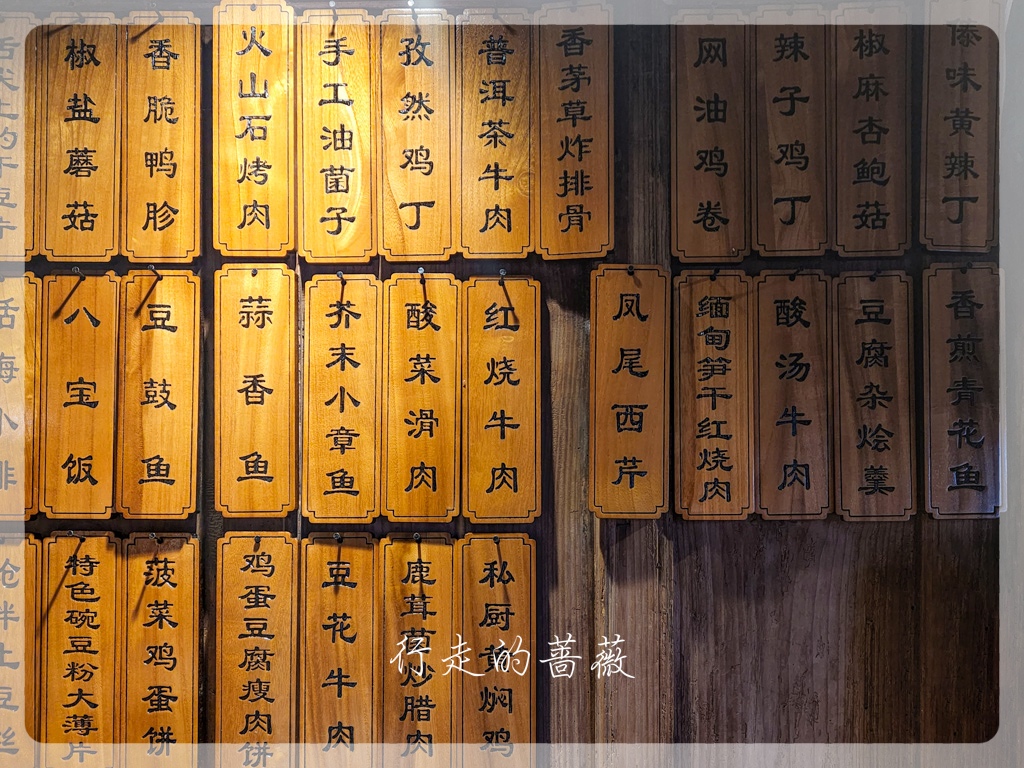 椒盐蘑菇
香脆鸭胗
火山石烤肉
手工油菌子
孜然鸡丁
普洱茶牛肉
香茅草炸排骨
网油鸡卷
辣子鸡丁
椒麻杏鲍菇
味黄辣丁
八宝饭
豆鼓鱼
蒜香鱼
芥末小章鱼
酸菜滑肉
红烧牛肉
凤尾西芹
缅甸笋干红烧肉
酸汤牛肉
豆腐杂烩羹
香煎青花鱼
炝拌土豆丝
特色碗豆粉大薄片
菠菜鸡蛋饼
鸡蛋豆腐瘦肉饼
豆花牛肉
鹿茸菌炒腊肉
私厨黄焖鸡
行走的蔷薇